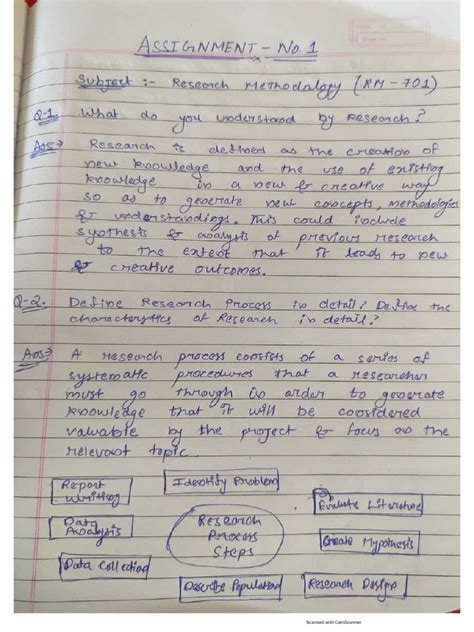 ASSIGNMENT - No. 1
Subject :- Research Methodology (RM-701)
Q-1. What do you understand by Research?
Ans→ Research is defined as the creation of
new knowledge and the use of existing
knowledge in a new & creative way
so as to generate new concepts, methodologies
& understandings. This could include
synthesis & analysis of previous research
to the extent that it leads to new
& creative outcomes.
Q-2. Define Research Process in detail? Define the
characterstics of Research in detail?
Ans→ A research process consists of a series of
systematic procedures that a researcher
must go through in order to generate
knowledge that it will be considered
valuable by the project & focus on the
relevant topic.
Identify Problem
Evaluate Literature
Create Hypothesis
Research Design
Describe Population
Data Collection
Data Analysis
Report Writing
Research
Process
Steps
Scanned with CamScanner